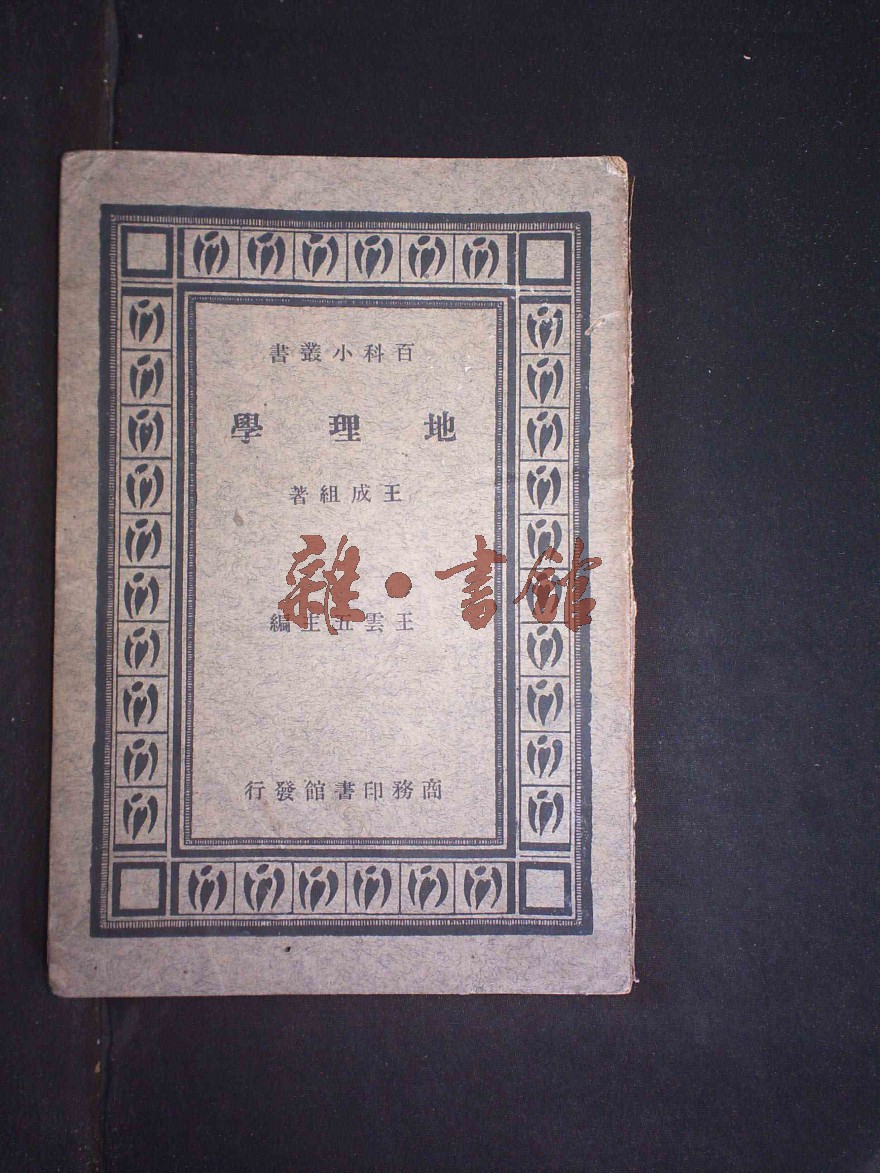 百科小叢書
地理學
王成組著
雜·書館
王雲五主編
商務印書館發行